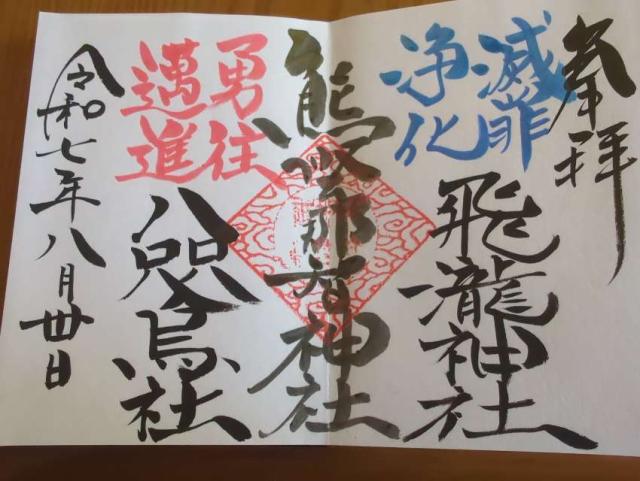 奉拝
滅罪
浄化
飛瀧神社
熊野那智神社
勇往
邁進
八咫烏社
令和七年八月卅日